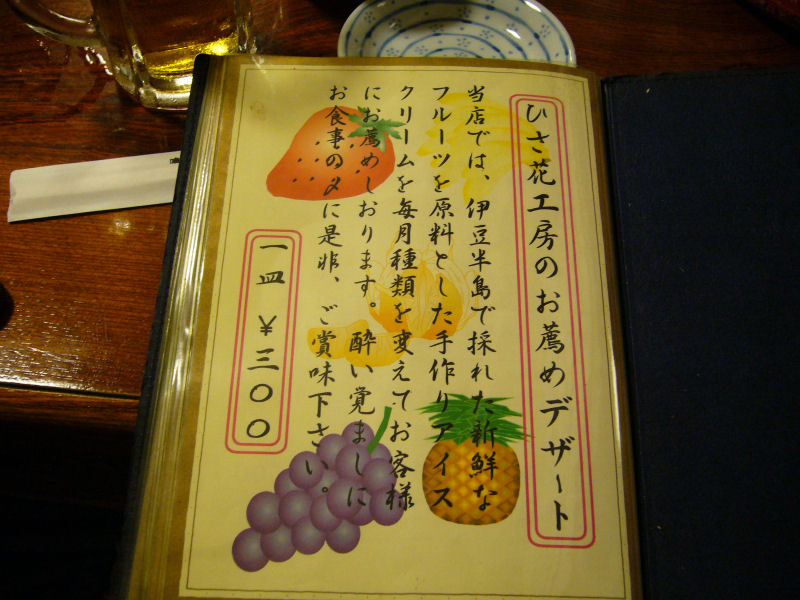 ひさ花工房のお薦めデザート
当店では、伊豆半島で採れた新鮮な
フルーツを原料とした手作りアイス
クリームを毎月種類を変えてお客様
にお薦めしております。酔い覚ましに
お食事の〆に是非、ご賞味下さい。
一皿 ¥三〇〇